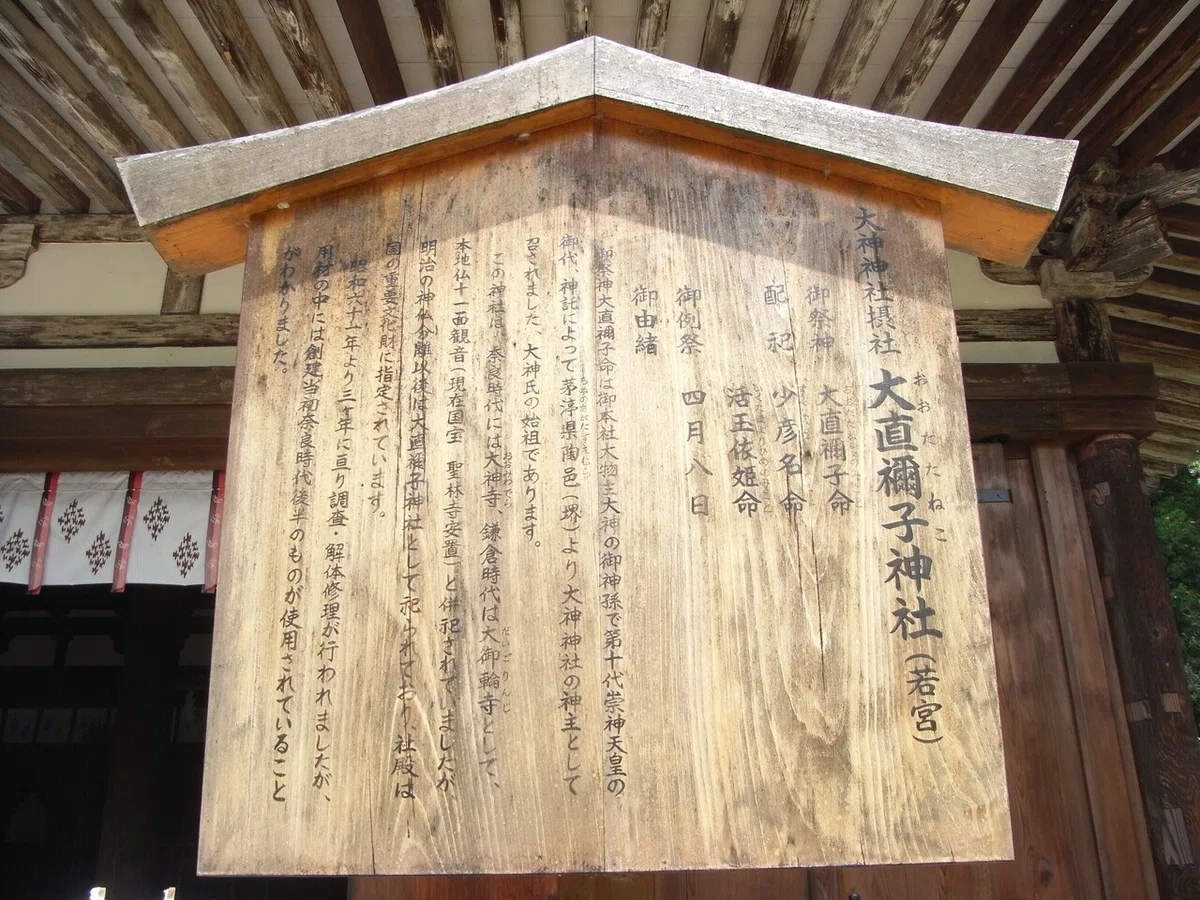 大神神社摂社 大直禰子神社(若宮)
おおたねこ
御祭神 大直禰子命
配祀 少彦名命
活玉依姫命
御例祭 四月八日
御由緒
御祭神大直禰子命は御本社大物主大神の御神孫で第十代崇神天皇の
御代、神託によって茅渟県陶邑(堺)より大神神社の神主として
召されました、大神氏の始祖であります。
この神社は、奈良時代には大神寺、鎌倉時代は大御輪寺として、
おおみわでら
だいごりんじ
本地仏十一面観音(現在国宝 聖林寺安置)と併祀されていましたが、
明治の神仏分離以後は大直禰子神社として祀られており、社殿は
国の重要文化財に指定されています。
昭和六十一年より三ヶ年に亘り調査・解体修理が行われましたが、
用材の中には創建当初奈良時代後半のものが使用されていること
がわかりました。